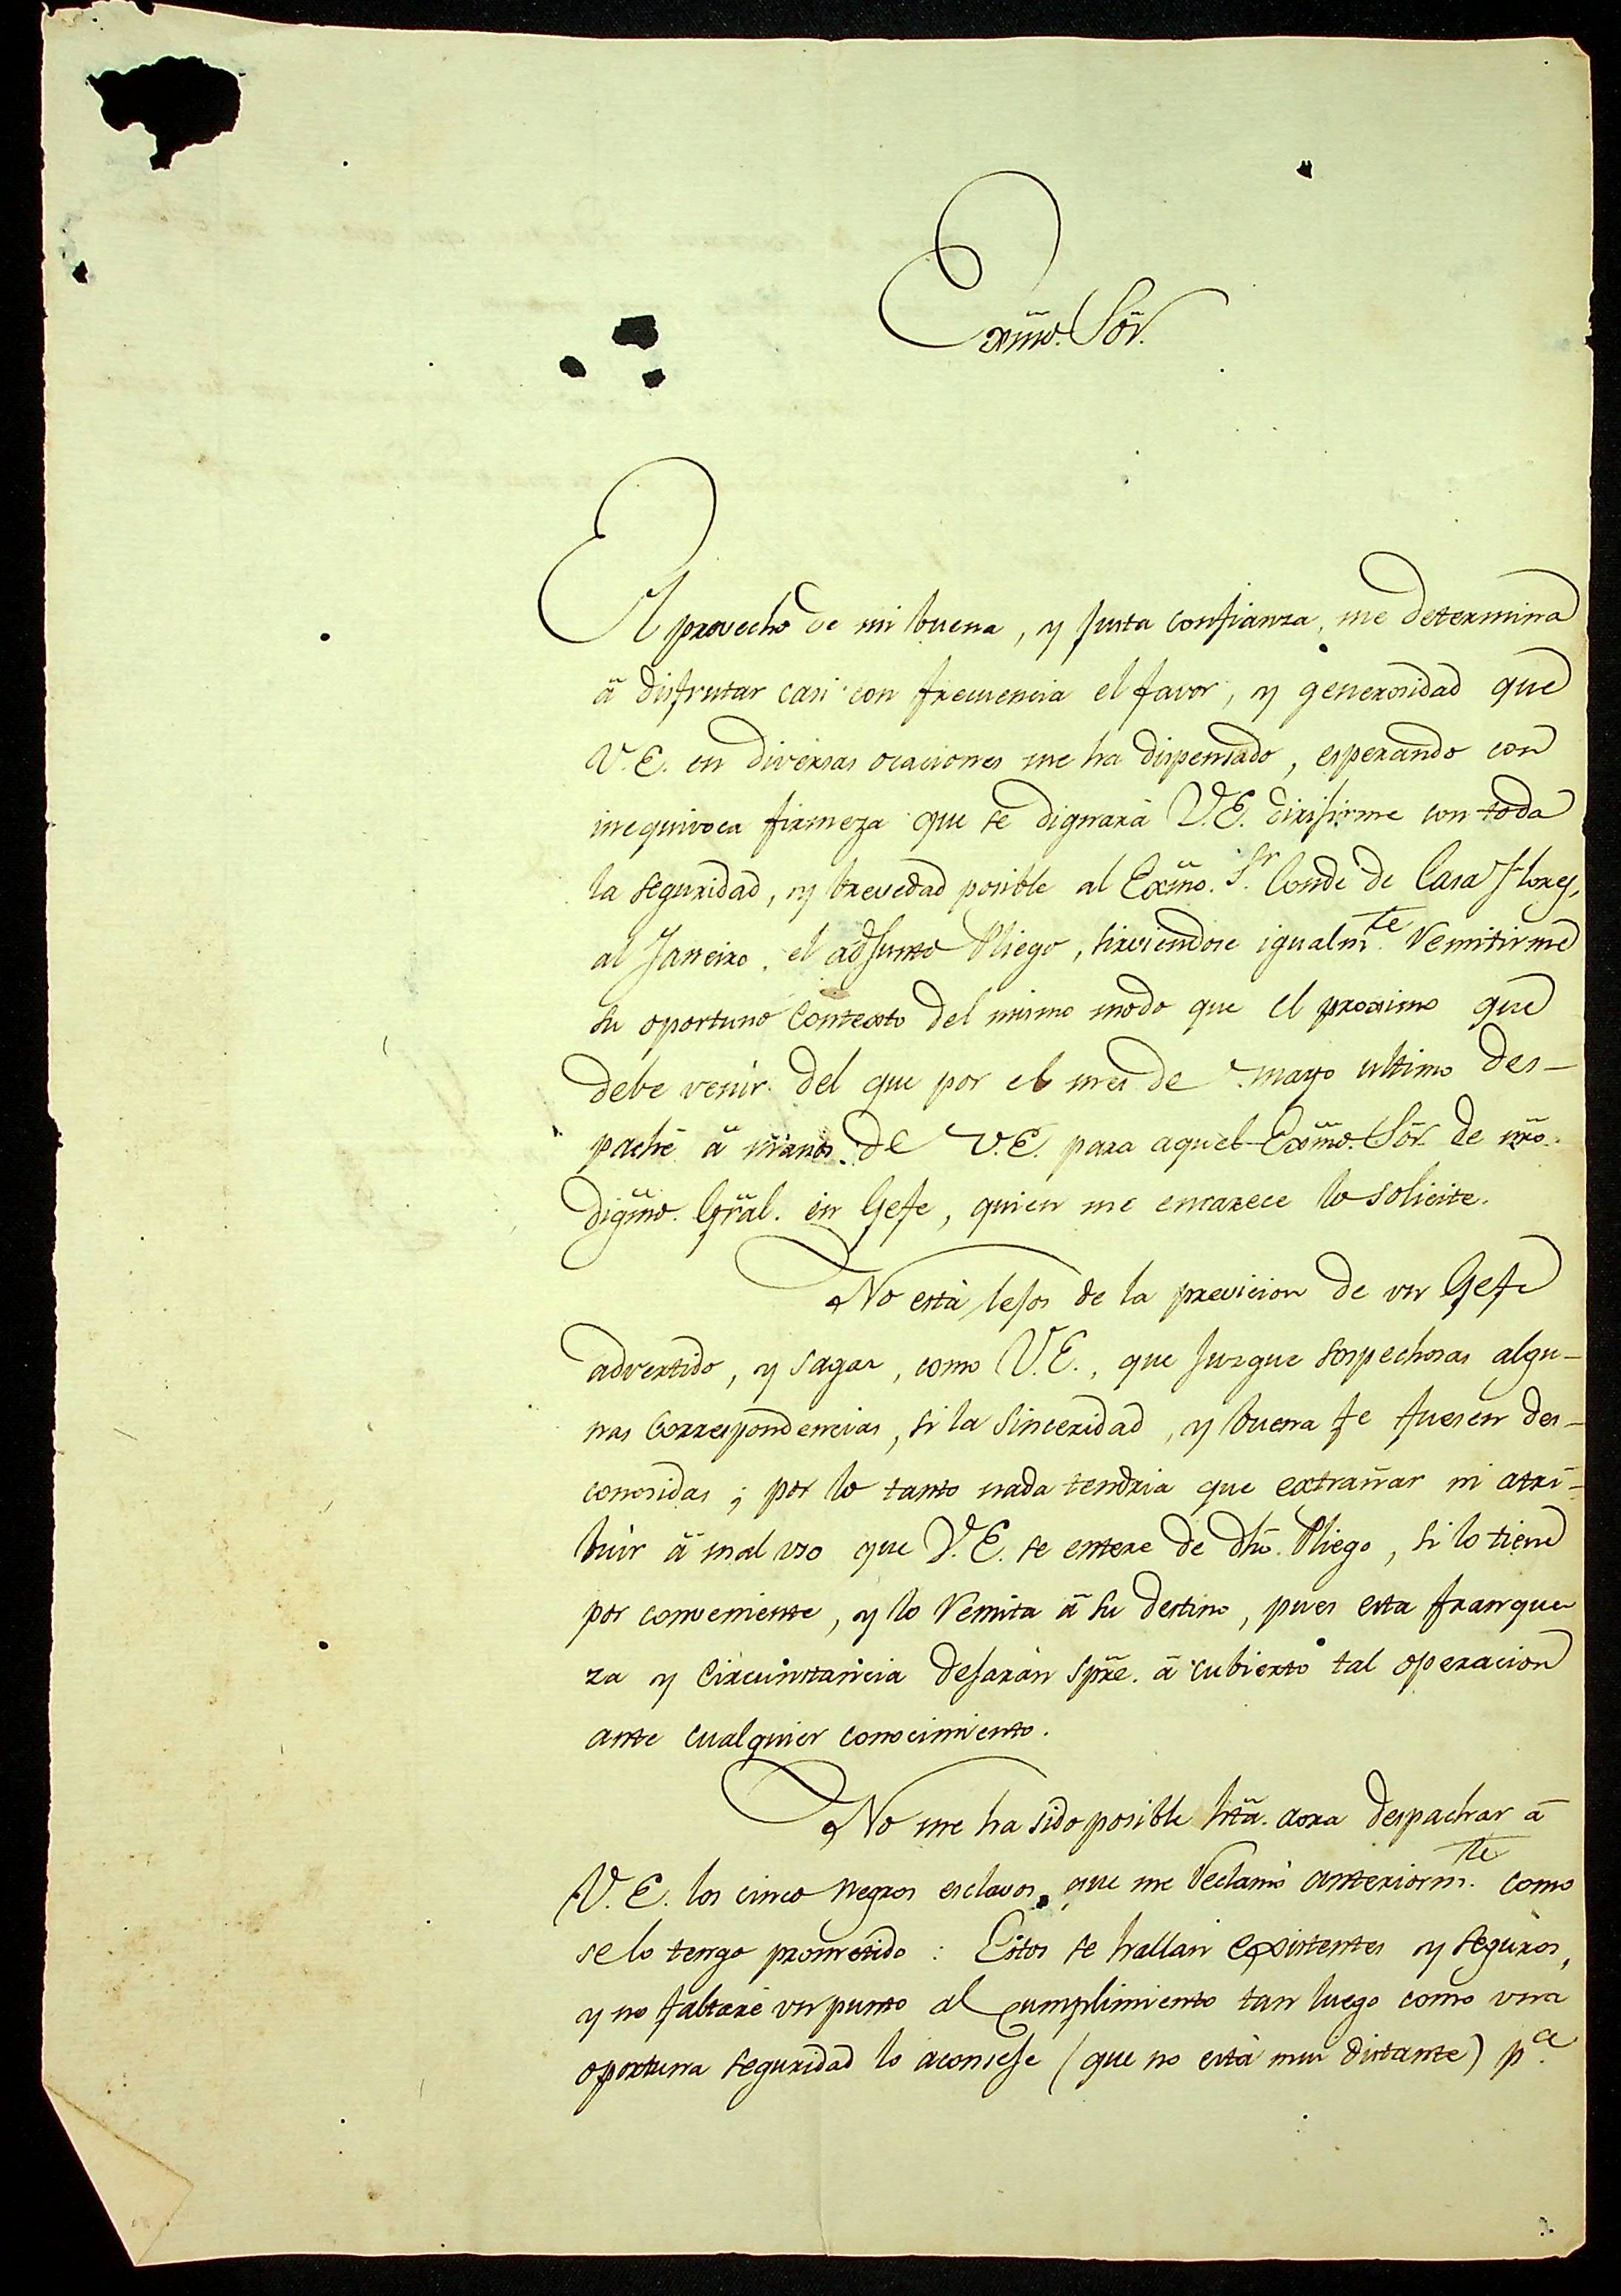 Exm̃o. Sõr.
Aprovecho de mi buena, y justa confianza, me determina
â disfrutar casi con frecuencia el favor, y generosidad que
V.E. en diversas ocaciones me ha dispensado, esperando con
inequivoca firmeza que se dignará V.E. dirijirme con toda
la seguridad, y brevedad posible al Exm̃o. Sr. Conde de Casa Flores,
al Janeiro, el adjunto Pliego, sirviendose igualmte. remitirme
su oportuno contexto del mismo modo que el proximo que
debe venir del que por el mes de mayo ultimo des-
paché â manos de V.E. para aquel Exm̃o. Sõr. de nr̃o.
digm̃o. Gr̃al. en Gefe, quien me encarece lo solicite.
No está lejos de la previcion de un Gefe
advertido, y sagas, como V.E., que jusgue sospechosas algu-
nas correspondencias, si la sinceridad, y buena fe fuesen des-
conosidas; por lo tanto nada tendria que extrañar ni atri-
buir â mal uso que V.E. se entere de dh̃o. Pliego, si lo tiene
por conveniente, y lo remita â su destino, pues esta franque-
za y circunstancia dejarán sp̃re. â cubierto tal operacion
ante cualquier conocimiento.
No me ha sido posible ht̃a. aora despachar â
V.E. los cinco negros esclavos que me reclamó anteriormte. como
se lo tengo prometido: Estos se hallan existentes y seguros,
y no faltaré un punto al cumplimiento tan luego como una
oportuna seguridad lo aconseje (que no está mui distante) pa.